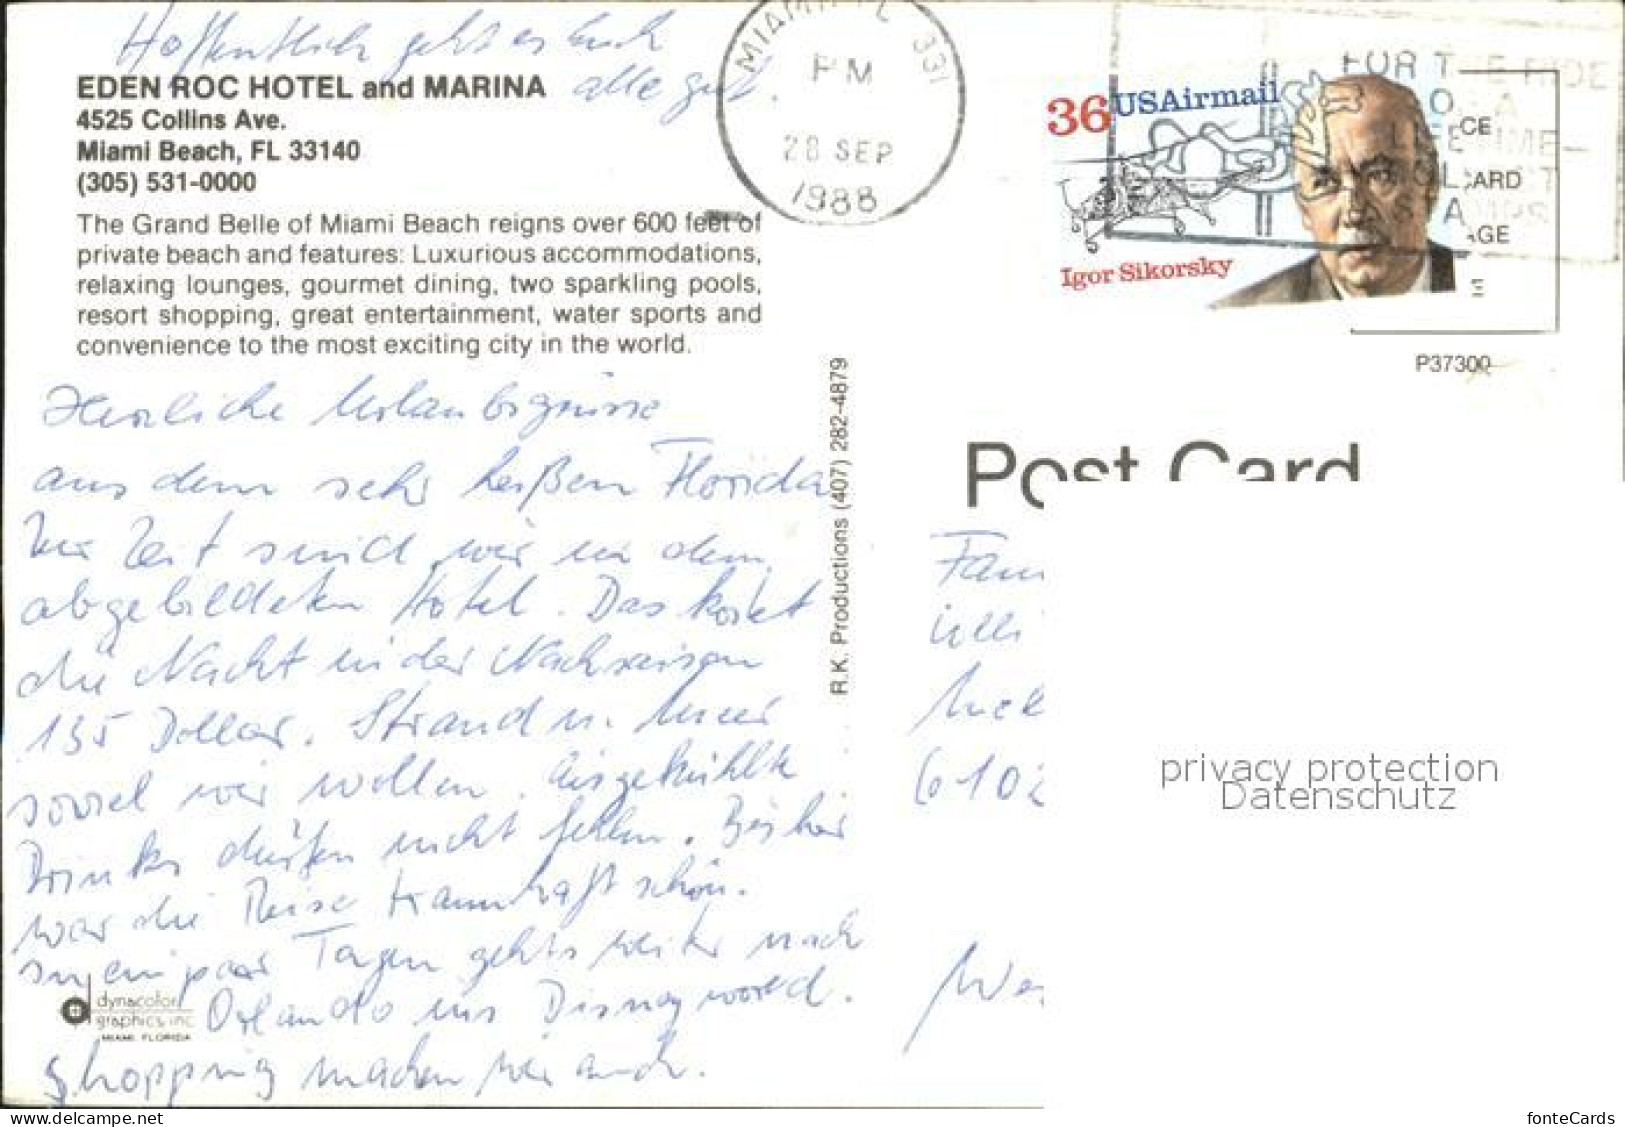 Hoffentlich geht es Euch
alle gut.
EDEN ROC HOTEL and MARINA
4525 Collins Ave.
Miami Beach, FL 33140
(305) 531-0000
The Grand Belle of Miami Beach reigns over 600 feet of
private beach and features: Luxurious accommodations,
relaxing lounges, gourmet dining, two sparkling pools,
resort shopping, great entertainment, water sports and
convenience to the most exciting city in the world.
Herzliche Urlaubsgrüsse
aus dem sehr heißen Florida
Zur Zeit sind wir in dem
abgebildeten Hotel. Das kostet
die Nacht in der Nachsaison
135 Dollar. Strand u. Meer
soviel wir wollen. Eisgekühlte
Drinks dürfen nicht fehlen. Bisher
war die Reise traumhaft schön.
In ein paar Tagen gehts weiter nach
Orlando ins Disneyworld.
Shopping machen wir auch.
dynacolor
graphics, inc.
MIAMI, FLORIDA
R.K. Productions (407) 282-4879
MIAMI, FL 331
PM
28 SEP
1988
36 USAirmail
Igor Sikorsky
FOR THE RIDE
OF A
LIFETIME–
COLLECT
STAMPS
CE
CARD
AGE
E
P37300
Post Card
Fam
6102
privacy protection
Datenschutz
my-tree-store.com
fonteCards